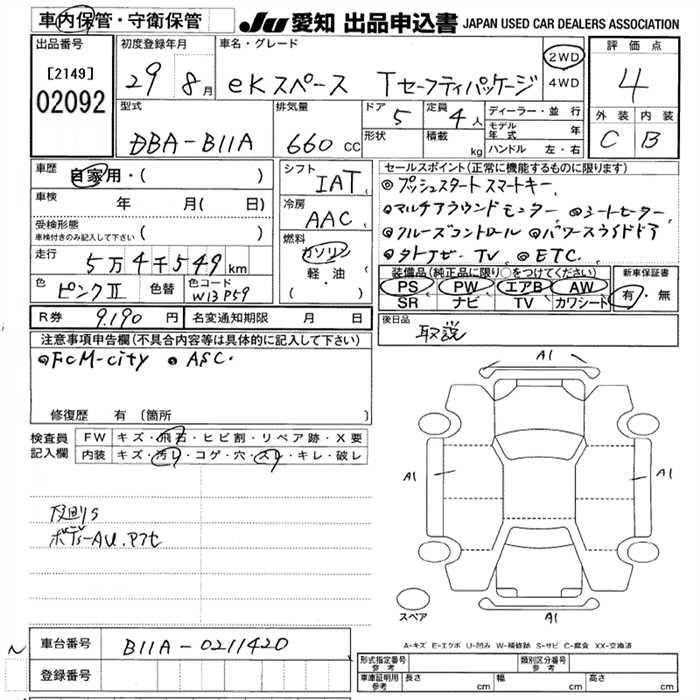 車内保管・守衛保管 JU 愛知 出品申込書 JAPAN USED CAR DEALERS ASSOCIATION
出品番号 初度登録年月 車名・グレード 評価点
[2149] 29 8月 eKスペース Tセーフティパッケージ 2WD 4
02092 4WD
型式 排気量 ドア 5 定員 4人 ディーラー・並行 外装 内装
DBA-B11A 660 CC 形状 積載 kg モデル年式 年 C B
ハンドル 左・右
車歴 自家用・( ) シフト IAT セールスポイント(正常に機能するものに限ります)
車検 年 月( 日) 冷房 AAC ◎プッシュスタートスマートキー
受検形態 ( ) ◎マルチアラウンドモニター ◎シートヒーター
車検付きのみ記入して下さい 燃料 ◎クルーズコントロール ◎パワースライドドア
走行 5万4千549km ガソリン TV ◎ETC.
軽・油 ( )
色 ピンクII 色替 色コード W13P59 装備品(純正品に限り○をつけてください) 新車保証書
PS PW エアB AW 有・無
SR ナビ TV カワシート
R券 9,190 円 名変通知期限 月 日 後日品
取説
注意事項申告欄(不具合内容等は具体的に記入して下さい)
◎FCM-city ◎ASC.
修復歴 有 (箇所
検査員記入欄 FW キズ・飛石・ヒビ割・リペア跡・X要
内装 キズ・汚れ・コゲ・穴・スレ・キレ・破レ
A1
A1 A1
A1
スペア
A-キズ E-エクボ U-凹み W-補修跡 S-サビ C-腐食 XX-交換済
車台番号 B11A-0211420
登録番号
形式指定番号 参考 類別区分番号 参考
車庫証明用 参考 長さ cm 幅 cm 高さ cm